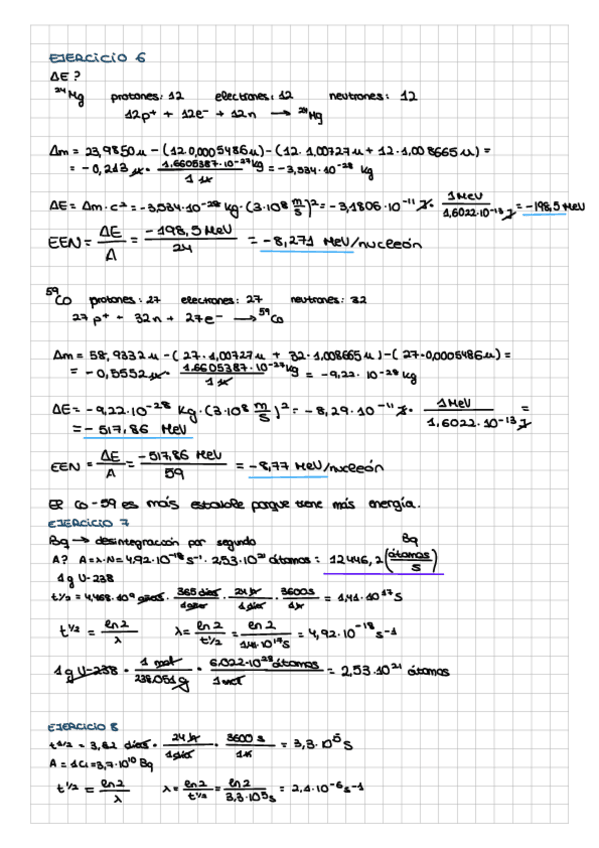 EJERCICIO 6
ΔE?
²⁴Mg protones: 12 electrones: 12 neutrones: 12
12p⁺ + 12e⁻ + 12n → ²⁴Mg
Δm = 23,9850u - (12·0,0005486u) - (12·1,00727u + 12·1,008665u) =
= -0,213 u · 1.6605387·10⁻²⁷kg / 1u = -3,534·10⁻²⁸ kg
ΔE = Δm·c² = -3,534·10⁻²⁸ kg·(3·10⁸ m/s)² = -3,1806·10⁻¹¹ J · 1MeV / 1,6022·10⁻¹³J = -198,5 MeV
EEN = ΔE/A = -198,5 MeV / 24 = -8,271 MeV/nucleón
⁵⁹Co protones: 27 electrones: 27 neutrones: 32
27p⁺ + 32n + 27e⁻ → ⁵⁹Co
Δm = 58,9332u - (27·1,00727u + 32·1,008665u) - (27·0,0005486u) =
= -0,5552u · 1.6605387·10⁻²⁷kg / 1u = -9,22·10⁻²⁸ kg
ΔE = -9,22·10⁻²⁸ kg·(3·10⁸ m/s)² = -8,29·10⁻¹¹ J · 1MeV / 1,6022·10⁻¹³J =
= -517,86 MeV
EEN = ΔE/A = -517,86 MeV / 59 = -8,77 MeV/nucleón
El Co-59 es más estable porque tiene más energía.
EJERCICIO 7
Bq → desintegración por segundo
A? A=λ·N=4,92·10⁻¹⁸ s⁻¹·2,53·10²¹ átomos = 12446,2 Bq (átomos/s)
1g U-238
t1/2 = 4,468·10⁹ años · 365 días / 1 año · 24 h / 1 día · 3600s / 1h = 1,41·10¹⁷ s
t1/2 = ln2/λ λ = ln2/t1/2 = ln2 / 1,41·10¹⁷s = 4,92·10⁻¹⁸ s⁻¹
1g U-238 · 1 mol / 238.051g · 6.022·10²³ átomos / 1 mol = 2,53·10²¹ átomos
EJERCICIO 8
t1/2 = 3,82 días · 24 h / 1 día · 3600 s / 1h = 3,3·10⁵ s
A = 1Ci = 3,7·10¹⁰ Bq
t1/2 = ln2/λ λ = ln2/t1/2 = ln2 / 3,3·10⁵s = 2,1·10⁻⁶ s⁻¹